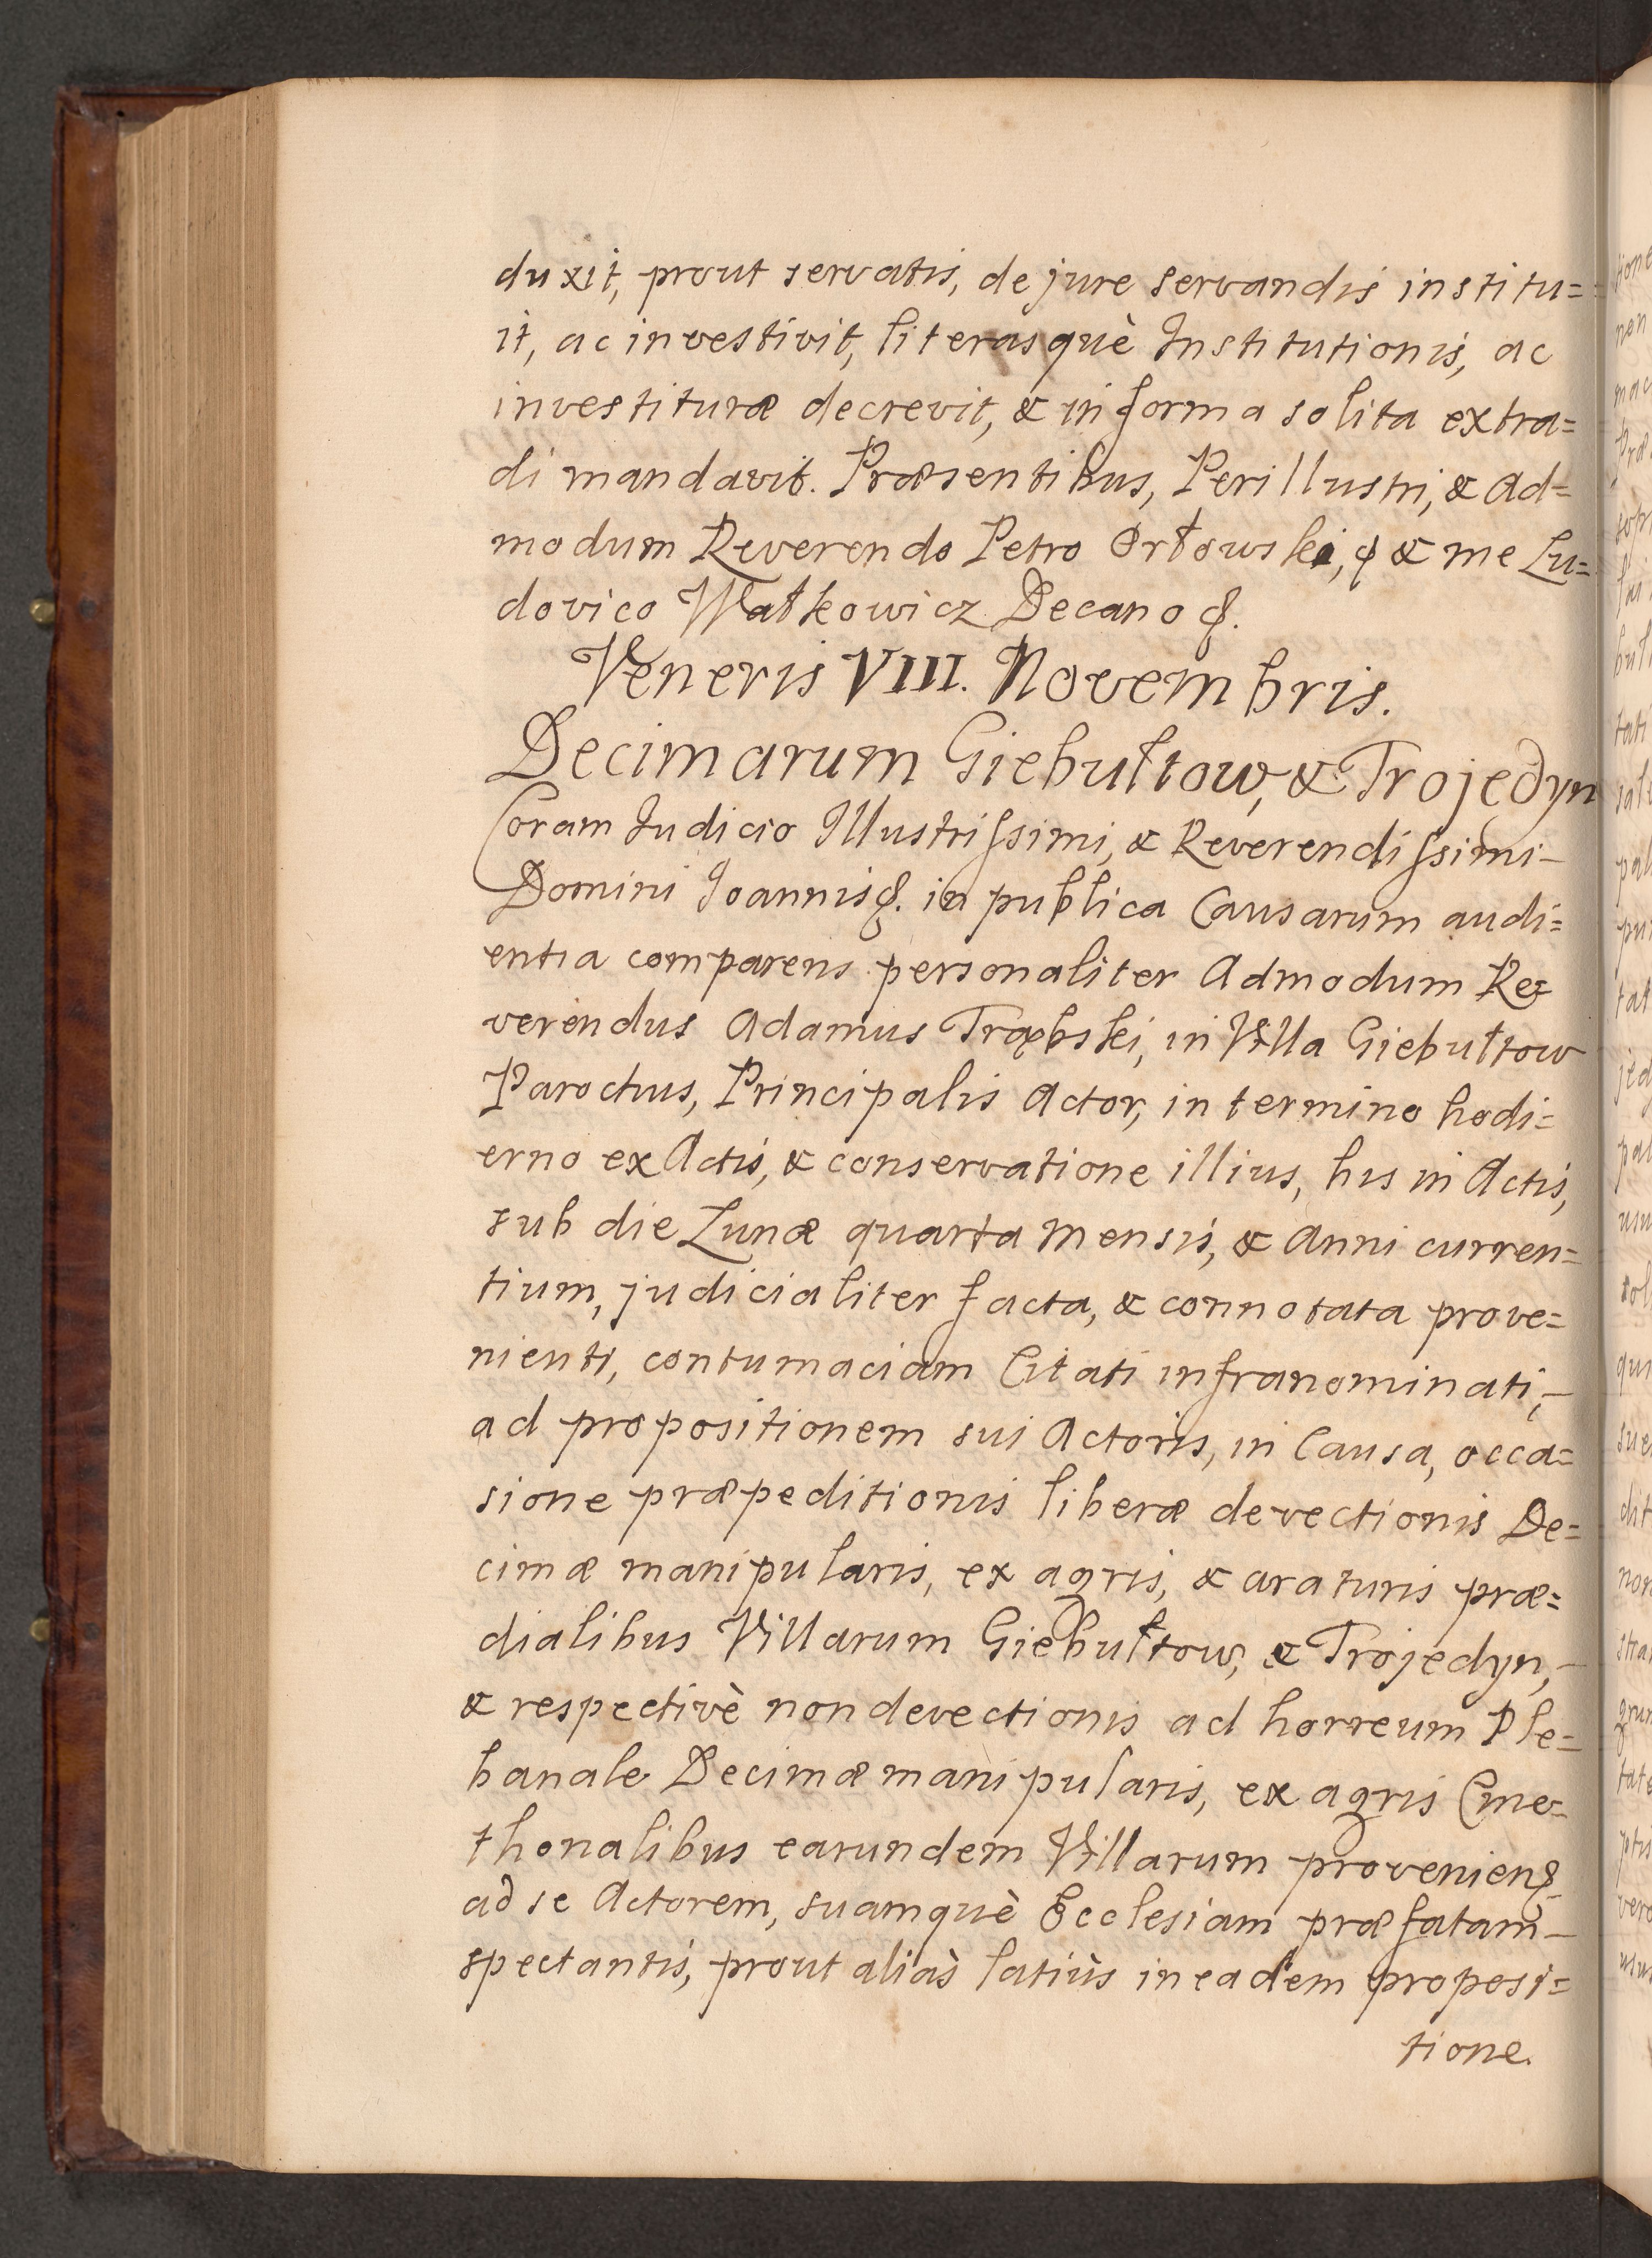 duxit, prout servatis, de jure servandis institu=
it, ac investivit, literasquè Institutionis, ac
investituræ decrevit, & in forma solita extra=
di mandavit. Præsentibus, Perillustri, & Ad=
modum Reverendo Petro Orłowski, & me Lu=
dovico Watkowicz Decano
Veneris VIII. Novembris.
Decimarum Giebułtow, & Trojedyn
Coram Iudicio Illustrissimi, & Reverendissimi–
Domini Joannis in publica Causarum audi=
entia comparens personaliter Admodum Re=
verendus Adamus Trąbski, in Villa Giebułtow
Parochus, Principalis Actor, in termino hodi=
erno ex Actis, & conservatione illius, his in Actis,
sub die Lunæ quarta Mensis, & Anni curren=
tium, judicialiter facta, & connotata prove=
nienti, contumaciam Citati infranominati,–
ad propositionem sui Actoris, in Causa, occa=
sione præpeditionis liberæ devectionis De=
cimæ manipularis, ex agris, & araturis præ=
dialibus Villarum Giebułtow, & Trojedyn,–
& respectivè non devectionis ad horreum Ple=
banale Decimæ manipularis, ex agris Cme=
thonalibus earundem Villarum
ad se Actorem, suamquè Ecclesiam præfatam–
spectantis, prout aliàs latiùs in eadem proposi=
tione.